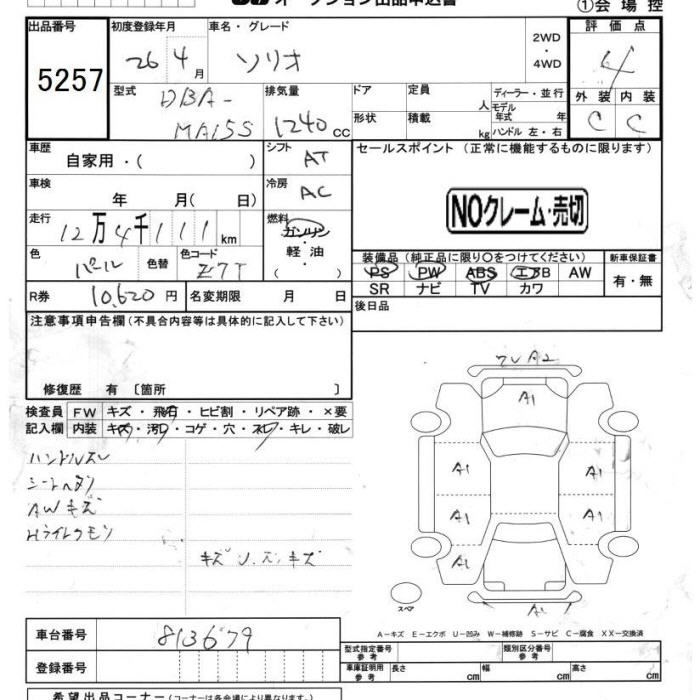 オークション出品申込書
①会場控
出品番号 初度登録年月 車名・グレード 評価点
5257 26 4月 ソリオ 2WD・4WD 4
型式 DBA-MA15S 排気量 1240cc ドア 定員 人 ディーラー・並行 外装 内装
形状 積載 kg モデル年式 年 ハンドル 左・右 C C
車歴 自家用・( ) シフト AT セールスポイント (正常に機能するものに限ります)
車検 年 月( 日) 冷房 AC
NOクレーム・売切
走行 12万4千111km 燃料 ガソリン・軽油 ( )
色 パール 色替 色コード Z7T
装備品 (純正品に限り○をつけてください) 新車保証書
PS PW ABS エアB AW 有・無
SR ナビ TV カワ
R券 10,620円 名変期限 月 日 後日品
注意事項申告欄 (不具合内容等は具体的に記入して下さい)
修復歴 有 〔箇所 〕
検査員 FW キズ・飛石・ヒビ割・リペア跡・×要
記入欄 内装 キズ・汚レ・コゲ・穴・スレ・キレ・破レ
ハンドルスレ
シートヘタリ
AWキズ
Hライトクモリ
A2
A1
A1 A1
A1 A1
A1 A1
A1
スペア
A-キズ E-エクボ U-凹み W-補修跡 S-サビ C-腐食 XX-交換済
車台番号 813679
登録番号
型式指定番号 参考 類別区分番号 参考
車庫証明用 参考 長さ cm 幅 cm 高さ cm
希望出品コーナー (コーナーは各会場により異なります)